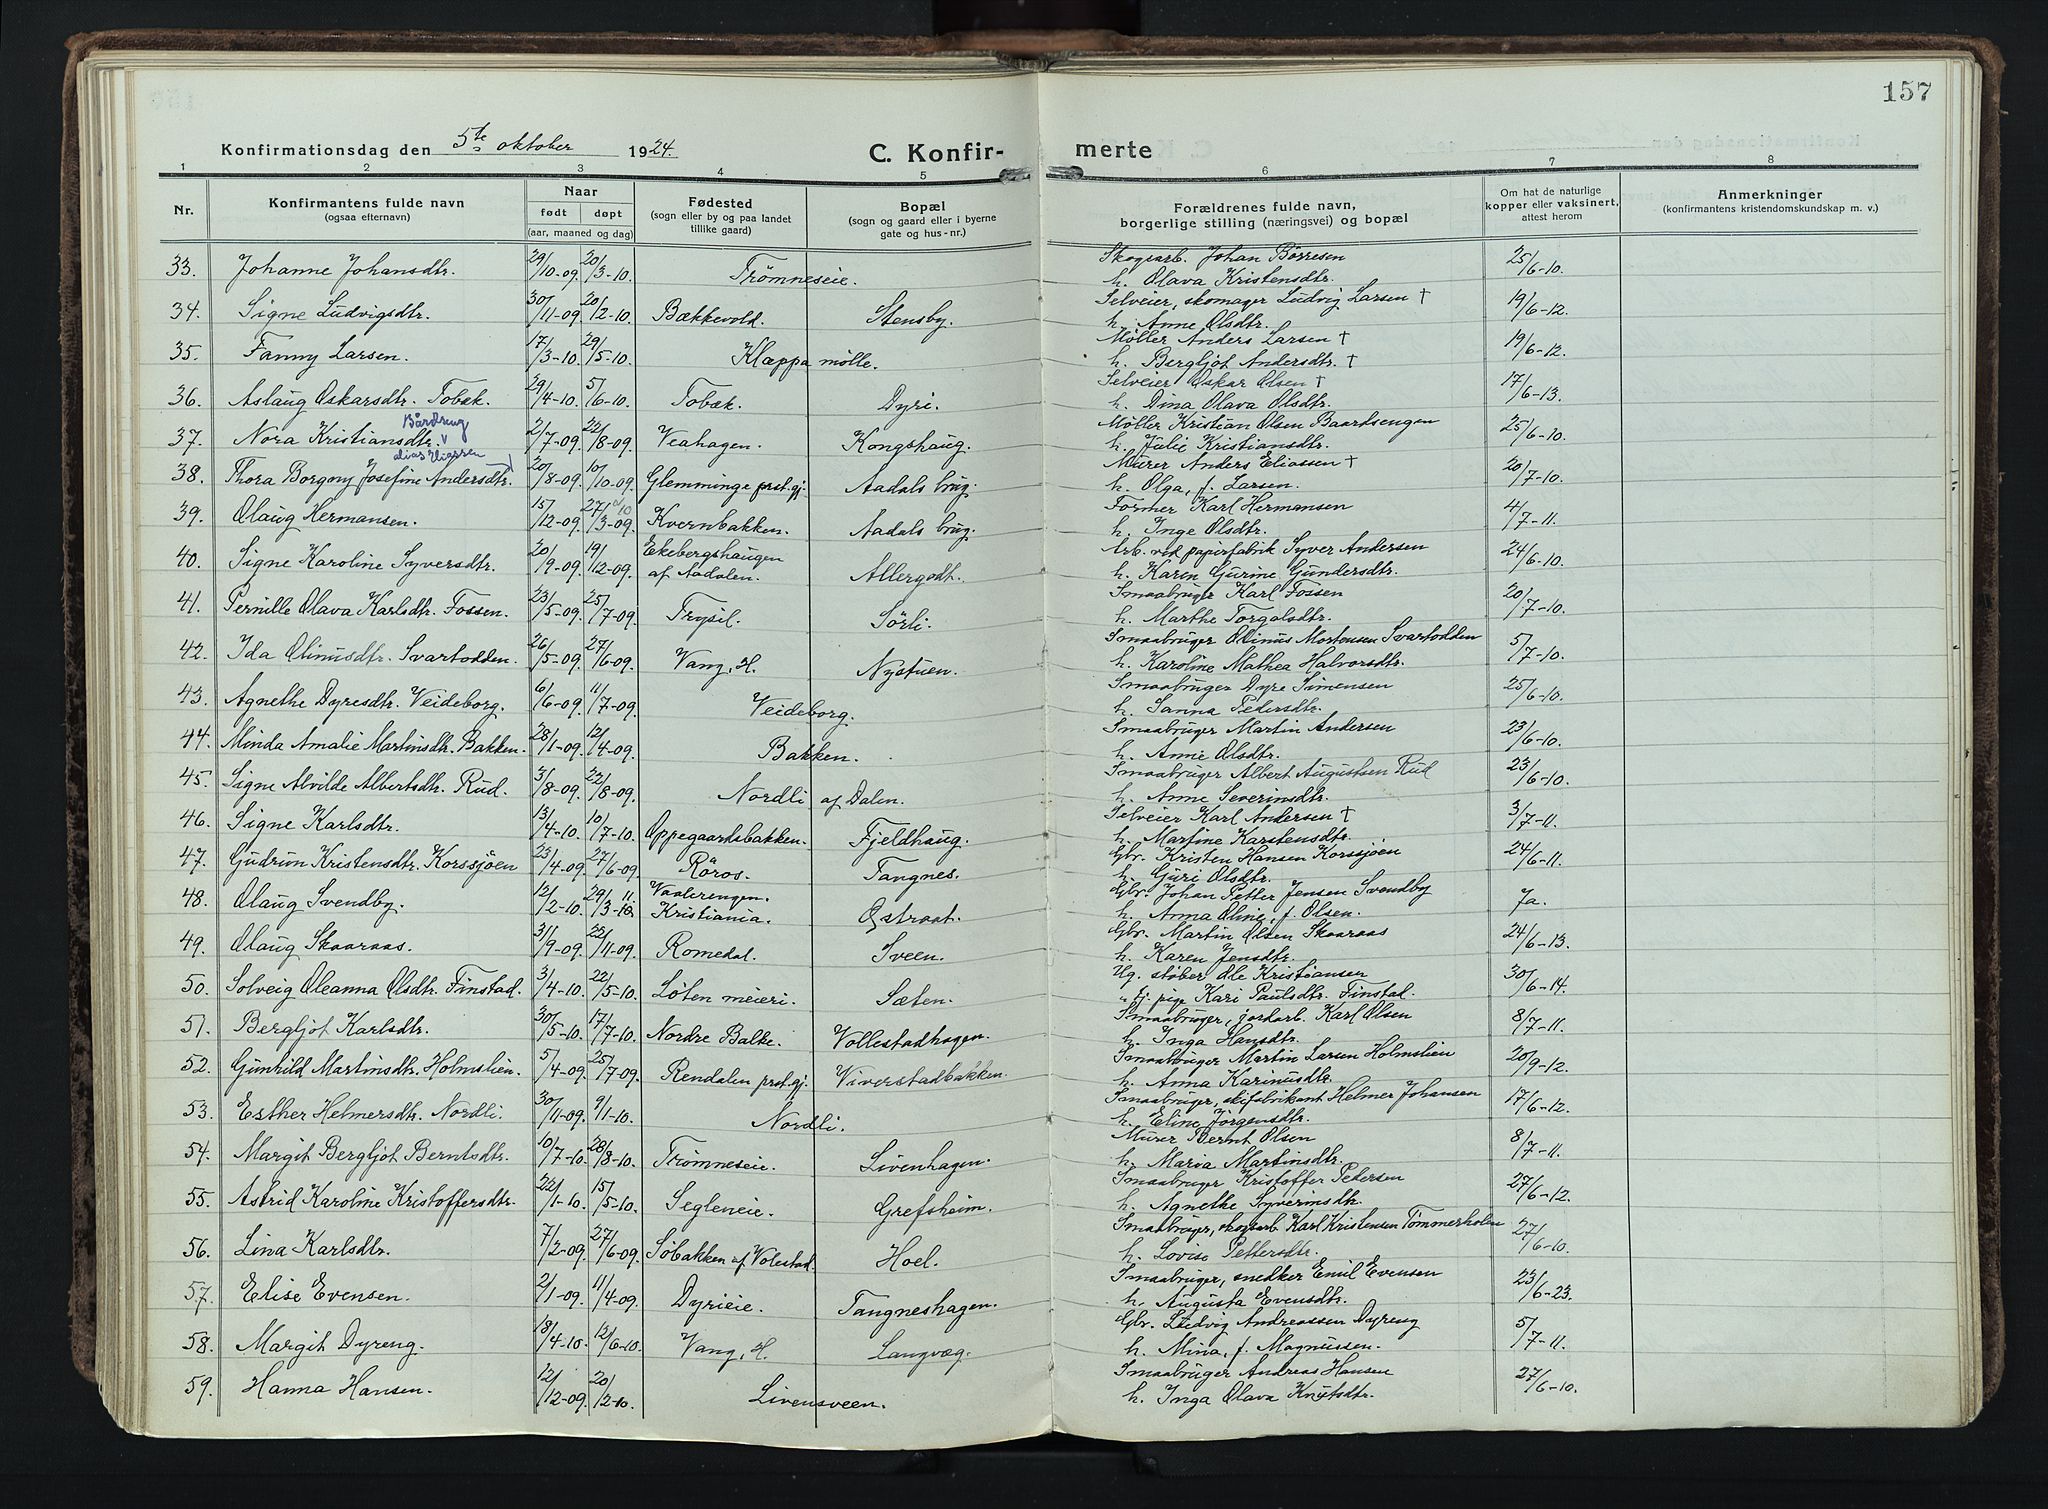 157
Konfirmationsdag den 5te oktober 1924.
C. Konfir-merte
1 2 3 4 5 6 7 8
Nr. Konfirmantens fulde navn (ogsaa efternavn) Naar født døpt (aar, maaned og dag) Fødested (sogn eller by og paa landet tillike gaard) Bopæl (sogn og gaard eller i byerne gate og hus-nr.) Forældrenes fulde navn, borgerlige stilling (næringsvei) og bopæl Om hat de naturlige kopper eller vaksinert, attest herom Anmerkninger (konfirmantens kristendomskundskap m. v.)
33. Johanne Johansdtr. 29/10-09. 20/3-10. Trømneseie. Skogsarb. Johan Børresen 25/6-10.
h. Olava Kristensdtr.
34. Signe Ludvigsdtr. 30/11-09. 20/2-10. Bækkevold. Stensby. Selveier, skomager Ludvig Larsen † 19/6-12.
h. Anne Olsdtr.
35. Fanny Larsen. 17/3-10. 29/5-10. Klæppa mølle. Møller Anders Larsen † 19/6-12.
h. Bergljot Andersdtr. †
36. Aslaug Oskarsdtr. Tobæk. 29/4-10. 5/6-10. Tobæk. Dyri. Selveier Oskar Olsen † 17/6-13.
h. Dina Olava Olsdtr.
Bårdseng
37. Nora Kristiansdtr. 2/7-09. 22/8-09. Veahagen. Kongshaug. Møller Kristian Olsen Baardsengen 25/6-10.
h. Julie Kristiansdtr.
alias Eliassen
38. Thora Borgny Josefine Andersdtr. 20/8-09. 10/10-09. Glemminge prst.gj. Aadals brug. Murer Anders Eliassen † 20/7-10.
h. Olga, f. Larsen.
39. Olaug Hermansen. 15/12-09. 27/3-09. Kvernbakken. Aadals brug. Former Karl Hermansen 4/7-11.
h. Inge Olsdtr.
40. Signe Karoline Syversdtr. 20/9-09. 19/12-09. Ekebergshaugen af Aadalen. Allergodt. Arb. ved papirfabrik Syver Andersen 24/6-10.
h. Karen Gurine Gundersdtr.
41. Pernille Olava Karlsdtr. Fossen. 23/5-09. 25/7-09. Trysil. Sørli. Smaabruger Karl Fossen 20/7-10.
h. Marthe Torgalsdtr.
42. Ida Olinusdtr. Svartodden. 26/5-09. 27/6-09. Vang, H. Nystuen. Smaabruger Olinus Mortensen Svartodden 5/7-10.
h. Karoline Mathea Halvorsdtr.
43. Agnethe Dyresdtr. Veideborg. 6/6-09. 11/7-09. Veideborg. Smaabruger Dyre Simensen 25/6-10.
h. Sanna Pedersdtr.
44. Minda Amalie Martinsdtr. Bakken. 28/1-09. 12/4-09. Bakken. Smaabruger Martin Andersen 23/6-10.
h. Anne Olsdtr.
45. Signe Alvilde Albertsdtr. Rud. 3/8-09. 22/8-09. Nordli af Dalen. Smaabruger Albert Augustsen Rud 23/6-10.
h. Anne Severinsdtr.
46. Signe Karlsdtr. 13/4-10. 10/7-10. Oppegaardsbakken. Fjeldhaug. Selveier Karl Andersen † 3/7-11.
h. Martine Karstensdtr.
47. Gudrun Kristensdtr. Korssjøen 23/4-09. 27/6-09 Røros. Tangnes. Gbr. Kristen Hansen Korssjøen 24/6-11.
h. Guri Olsdtr.
48. Olaug Svendby. 12/2-10. Vaalerengen. Kristiania. Østraat. Gbr. Johan Petter Jensen Svendby Ja.
h. Anna Oline, f. Olsen.
49. Olaug Skaaraas. 3/9-09. 22/11-09. Romedal. Sveen. Gbr. Martin Olsen Skaaraas 24/6-13.
h. Karen Jensdtr.
50. Solveig Oleanna Olsdtr. Finstad. 3/4-10. 22/5-10. Løten meieri. Sæten. Ug. støber Ole Kristiansen 30/6-14.
" tj. pige Kari Paulsdtr. Finstad.
51. Bergljot Karlsdtr. 30/5-10. 17/7-10. Nordre Balke. Vollestadhagen. Smaabruger, jordarb. Karl Olsen 8/7-11.
h. Inga Hansdtr.
52. Gunhild Martinsdtr. Holmslien. 5/4-09. 25/7-09. Rendalen prst.gj. Viverstadbakken. Smaabruger Martin Larsen Holmslien 20/9-12.
h. Anna Karinusdtr.
53. Esther Helmersdtr. Nordli. 30/11-09. 9/1-10. Nordli. Smaabruger, skifabrikant Helmer Johansen 17/6-12.
h. Eline Jørgensdtr.
54. Margit Bergljot Berntsdtr. 10/7-10. 28/8-10. Trømneseie. Livenhagen. Murer Bernt Olsen 8/7-11.
h. Maria Martinsdtr.
55. Astrid Karoline Kristoffersdtr. 22/1-10. 15/5-10. Segleneie. Grefsheim. Smaabruger Kristoffer Pedersen 27/6-12.
h. Agnethe Syverinsdtr.
56. Lina Karlsdtr. 7/2-09. 27/6-09. Søbakken af Volestad. Hoel. Smaabruger, skogsarb. Karl Kristensen Tømmerholen 27/6-10.
h. Lovise Pettersdtr.
57. Elise Evensen. 2/1-09. 11/4-09. Dyrieie. Tangneshagen. Smaabruger, snedker Emil Evensen 23/6-23.
h. Augusta Evensdtr.
58. Margit Dyreng. 18/4-10. 12/6-10. Vang, H. Langvæg. Gbr. Ludvig Andreassen Dyreng 5/7-11.
h. Mina, f. Magnussen.
59. Hanna Hansen. 12/12-09. 20/2-10. Livensveen. Smaabruger Andreas Hansen 27/6-10.
h. Inga Olava Knutsdtr.